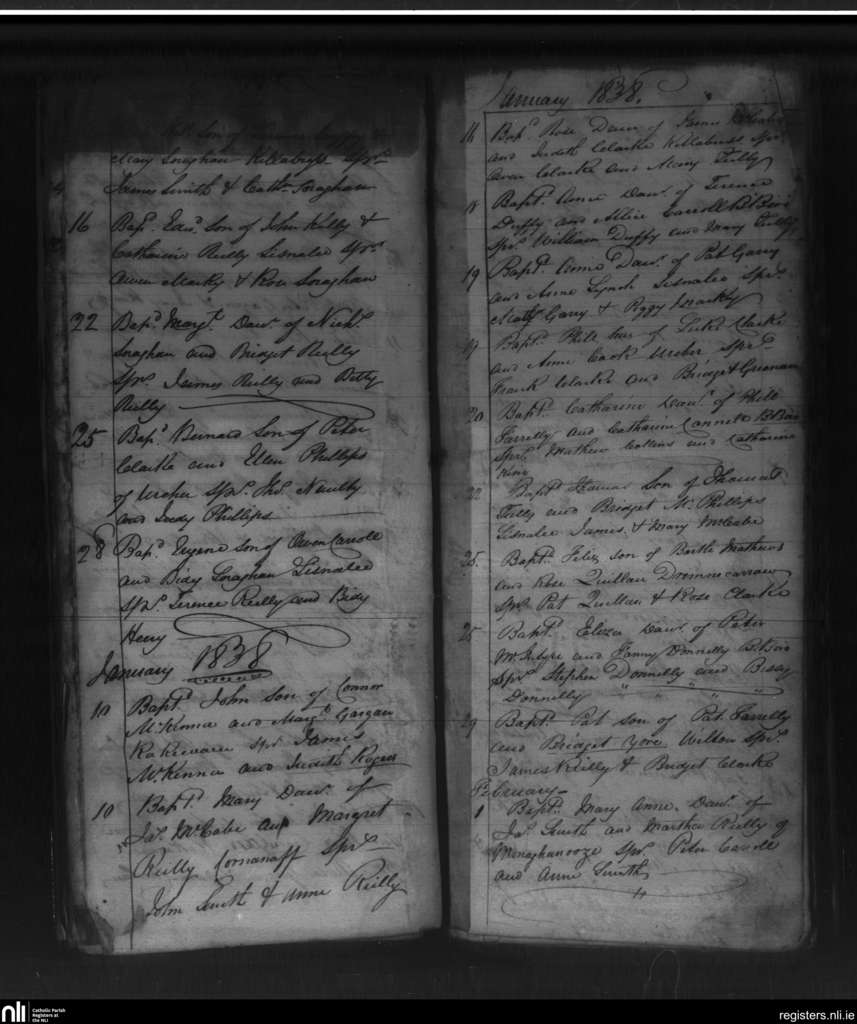 Son of
Mary Soraghan Killabryst Sprs
James Smith & Cathn Soraghan
16 Bapd Edwd Son of John Kelly &
Catharine Reilly Lisnalee Sprs
Owen Marky & Rose Soraghan
22 Bapd Margt Dawr of Nichs
Soraghan and Bridget Reilly
Sprs James Reilly and Betty
Reilly
25 Bapd Bernard Son of Peter
Clarke and Ellen Phillips
of Urcher Sprs Jhs
and Judy Phillips
28 Bapd Eugene Son of Owen Carroll
and Bidy Soraghan Lisnalee
Sprs Terence Reilly and Bidy
Henry
January 1838
10 Baptd John Son of Connor
McKenna and Margt Gargan
Sprs James
McKenna and Judith Rogers
10 Baptd Mary Dawr of
Jas McCabe and Margret
Reilly Cornanaff Sprs
John Smith & Anne Reilly
January 1838.
16 Bapd Rose Dawr of James
and Judith Clarke Killabryst Sprs
Owen Clarke and Mary Tully
18 Baptd Anne Dawr of Terence
Duffy and Allice Carroll
Sprs William Duffy and Mary Tully
19 Baptd Anne Dawr of Pat Garry
and Anne Lynch Lisnalee Sprs
Matts Garry & Peggy Marky
19 Baptd Phill Son of Luke Clarke
and Anne Cook Urcher Sprs
Frank Clarke and Bridget Grenan
20 Baptd Catharine Dawr of Phill
Farrelly and Catharine Connell
Sprs Mathew Collins and Catharine
King
22 Baptd Thomas Son of Thomas
Tully and Bridget McPhillips
Lisnalee James & Mary McCabe
25. Baptd Felix Son of Bartle Mathews
and Rose Quillan Drominscarraw
Sprs Pat Quillan & Rose Clarke
25 Baptd Eleza Dawr of Peter
McIntyre and Fanny Donnelly
Sprs Stephen Donnelly and Bessy
Donnelly " " " "
29 Baptd Pat Son of Pat Farrelly
and Bridget Yore Wilton Sprs
James Reilly & Bridget Clarke
February
1 Baptd Mary Anne Dawr of
Jas Smith and Martha Reilly of
Monaghanooze Sprs Peter Carroll
and Anne Smith
nli Catholic Parish
Registers at
the NLI
registers.nli.ie